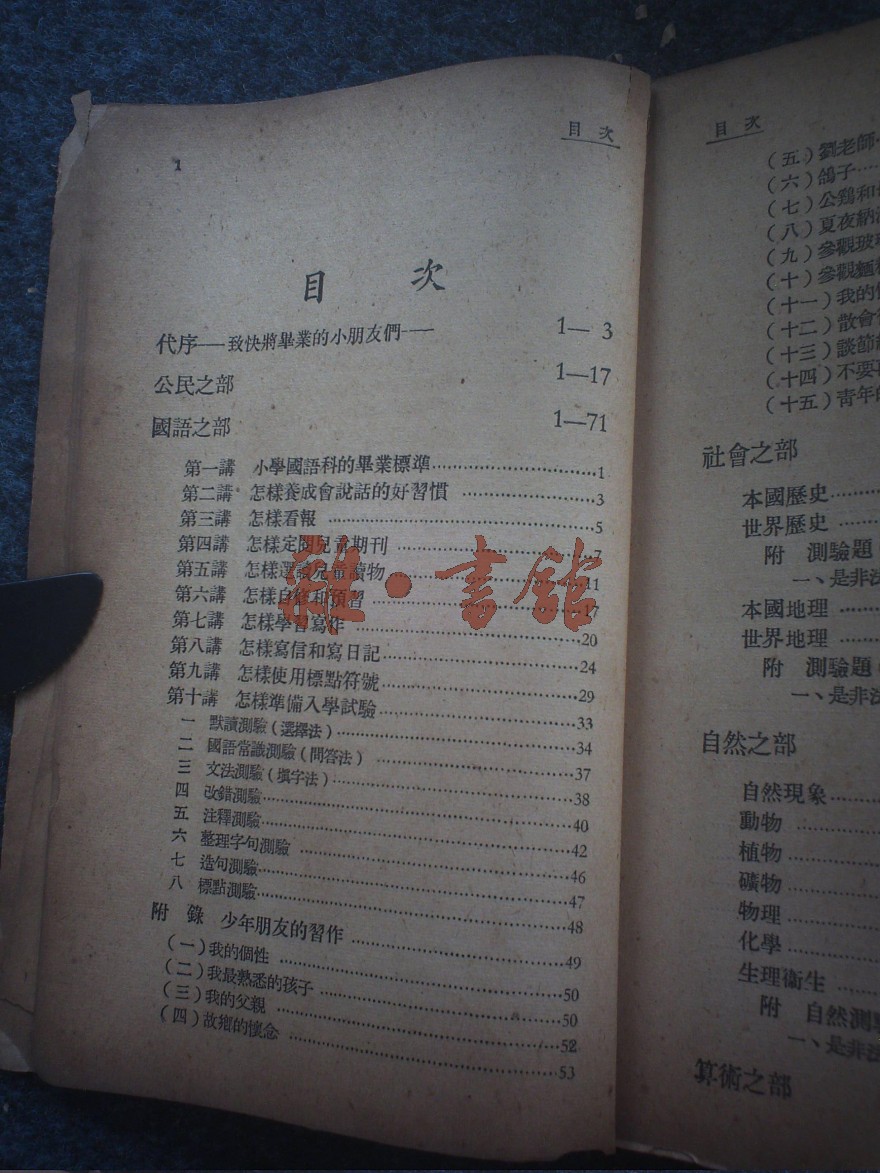 目次
1
目 次
代序——致快將畢業的小朋友們—— 1—3
公民之部 1—17
國語之部 1—71
第一講 小學國語科的畢業標準……1
第二講 怎樣養成會說話的好習慣……3
第三講 怎樣看報……5
第四講 怎樣定閱兒童期刊……7
第五講 怎樣選讀兒童讀物……11
第六講 怎樣自修和預習……17
第七講 怎樣學習寫作……20
第八講 怎樣寫信和寫日記……24
第九講 怎樣使用標點符號……29
第十講 怎樣準備入學試驗……33
一 默讀測驗(選擇法)……34
二 國語常識測驗(問答法)……37
三 文法測驗(填字法)……38
四 改錯測驗……40
五 注釋測驗……42
六 整理字句測驗……46
七 造句測驗……47
八 標點測驗……48
附錄 少年朋友的習作……49
(一)我的個性……50
(二)我最熟悉的孩子……50
(三)我的父親……52
(四)故鄉的懷念……53
雜·書館
目次
(五)劉老師……
(六)鴿子……
(七)公鷄和
(八)夏夜納
(九)參觀玻
(十)參觀麵
(十一)我的
(十二)散會
(十三)談節
(十四)不要
(十五)青年的
社會之部
本國歷史……
世界歷史……
附 測驗題
一、是非法
本國地理……
世界地理……
附 測驗題
一、是非法
自然之部
自然現象……
動物……
植物……
礦物……
物理……
化學……
生理衛生……
附 自然測驗
一、是非法
算術之部